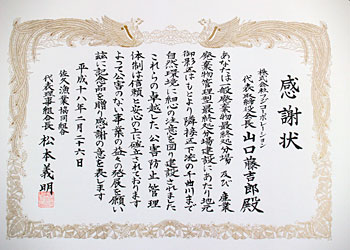 感謝状
株式会社フジコーポレーション
代表取締役会長 山口藤吉郎殿
あなたは一般廃棄物最終処分場 及び 産業
廃棄物管理型最終処分場建設にあたり地元
御影はもとより隣接近下流の千曲川まで
自然環境に細心の注意を図り建設されました
これらの卓越した公害防止管理
体制は信頼と安心の上に確立されております
よって公害のない事業の益々の発展を願い
茲に記念品を贈り感謝の意を表します
平成十八年二月二十六日
佐久漁業協同組合
代表理事組合長 松本義明